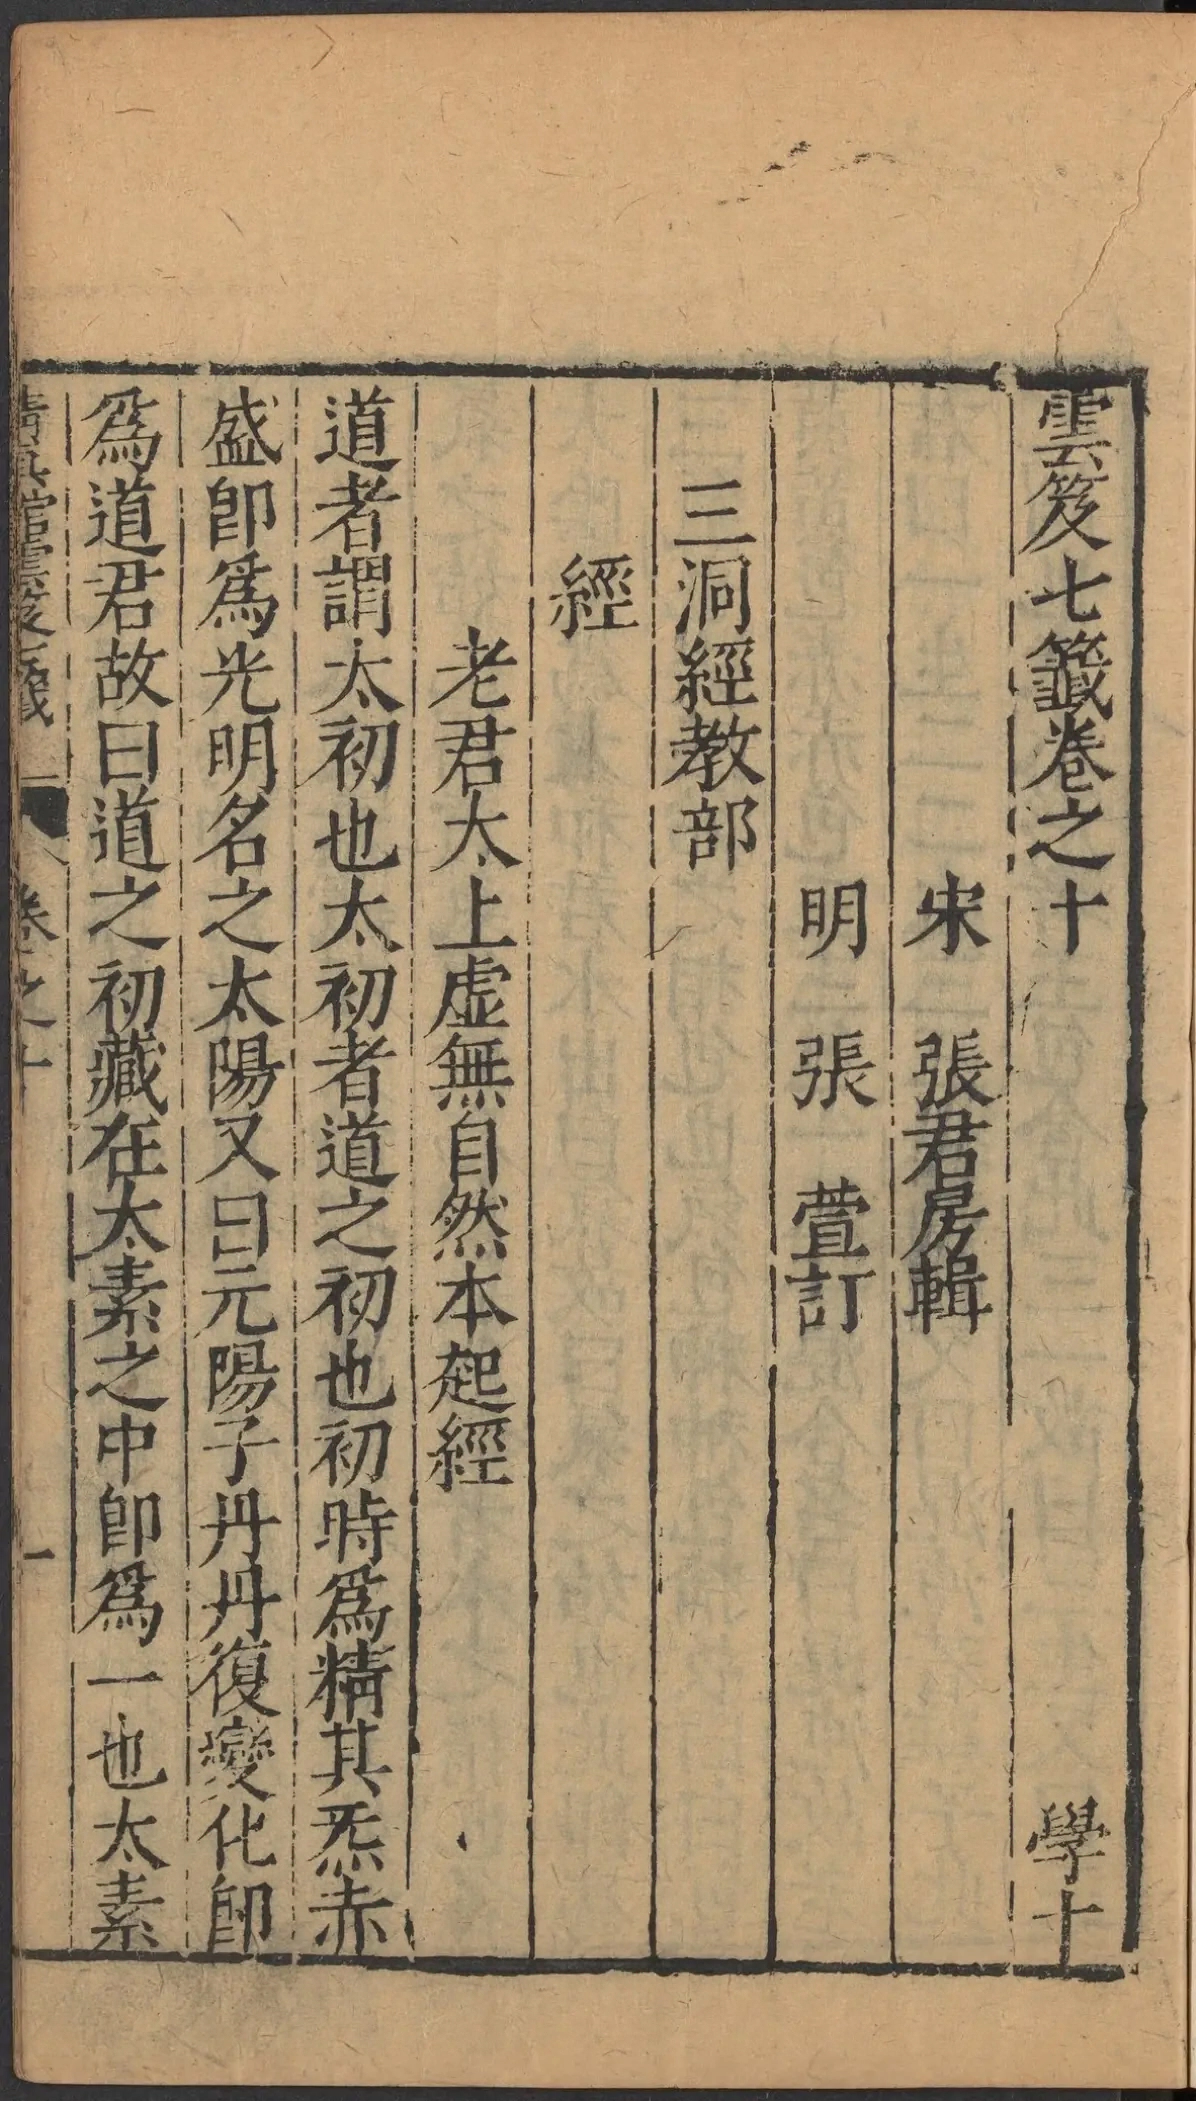 雲笈七籤卷之十 學十
宋 張君房輯
明 張 萱訂
三洞經教部
經
老君太上虛無自然本起經
道者謂太初也太初者道之初也初時爲精其炁赤
盛卽爲光明名之太陽又曰元陽子丹丹復變化卽
爲道君故曰道之初藏在太素之中卽爲一也太素
清真館雲笈七籤 卷之十 一